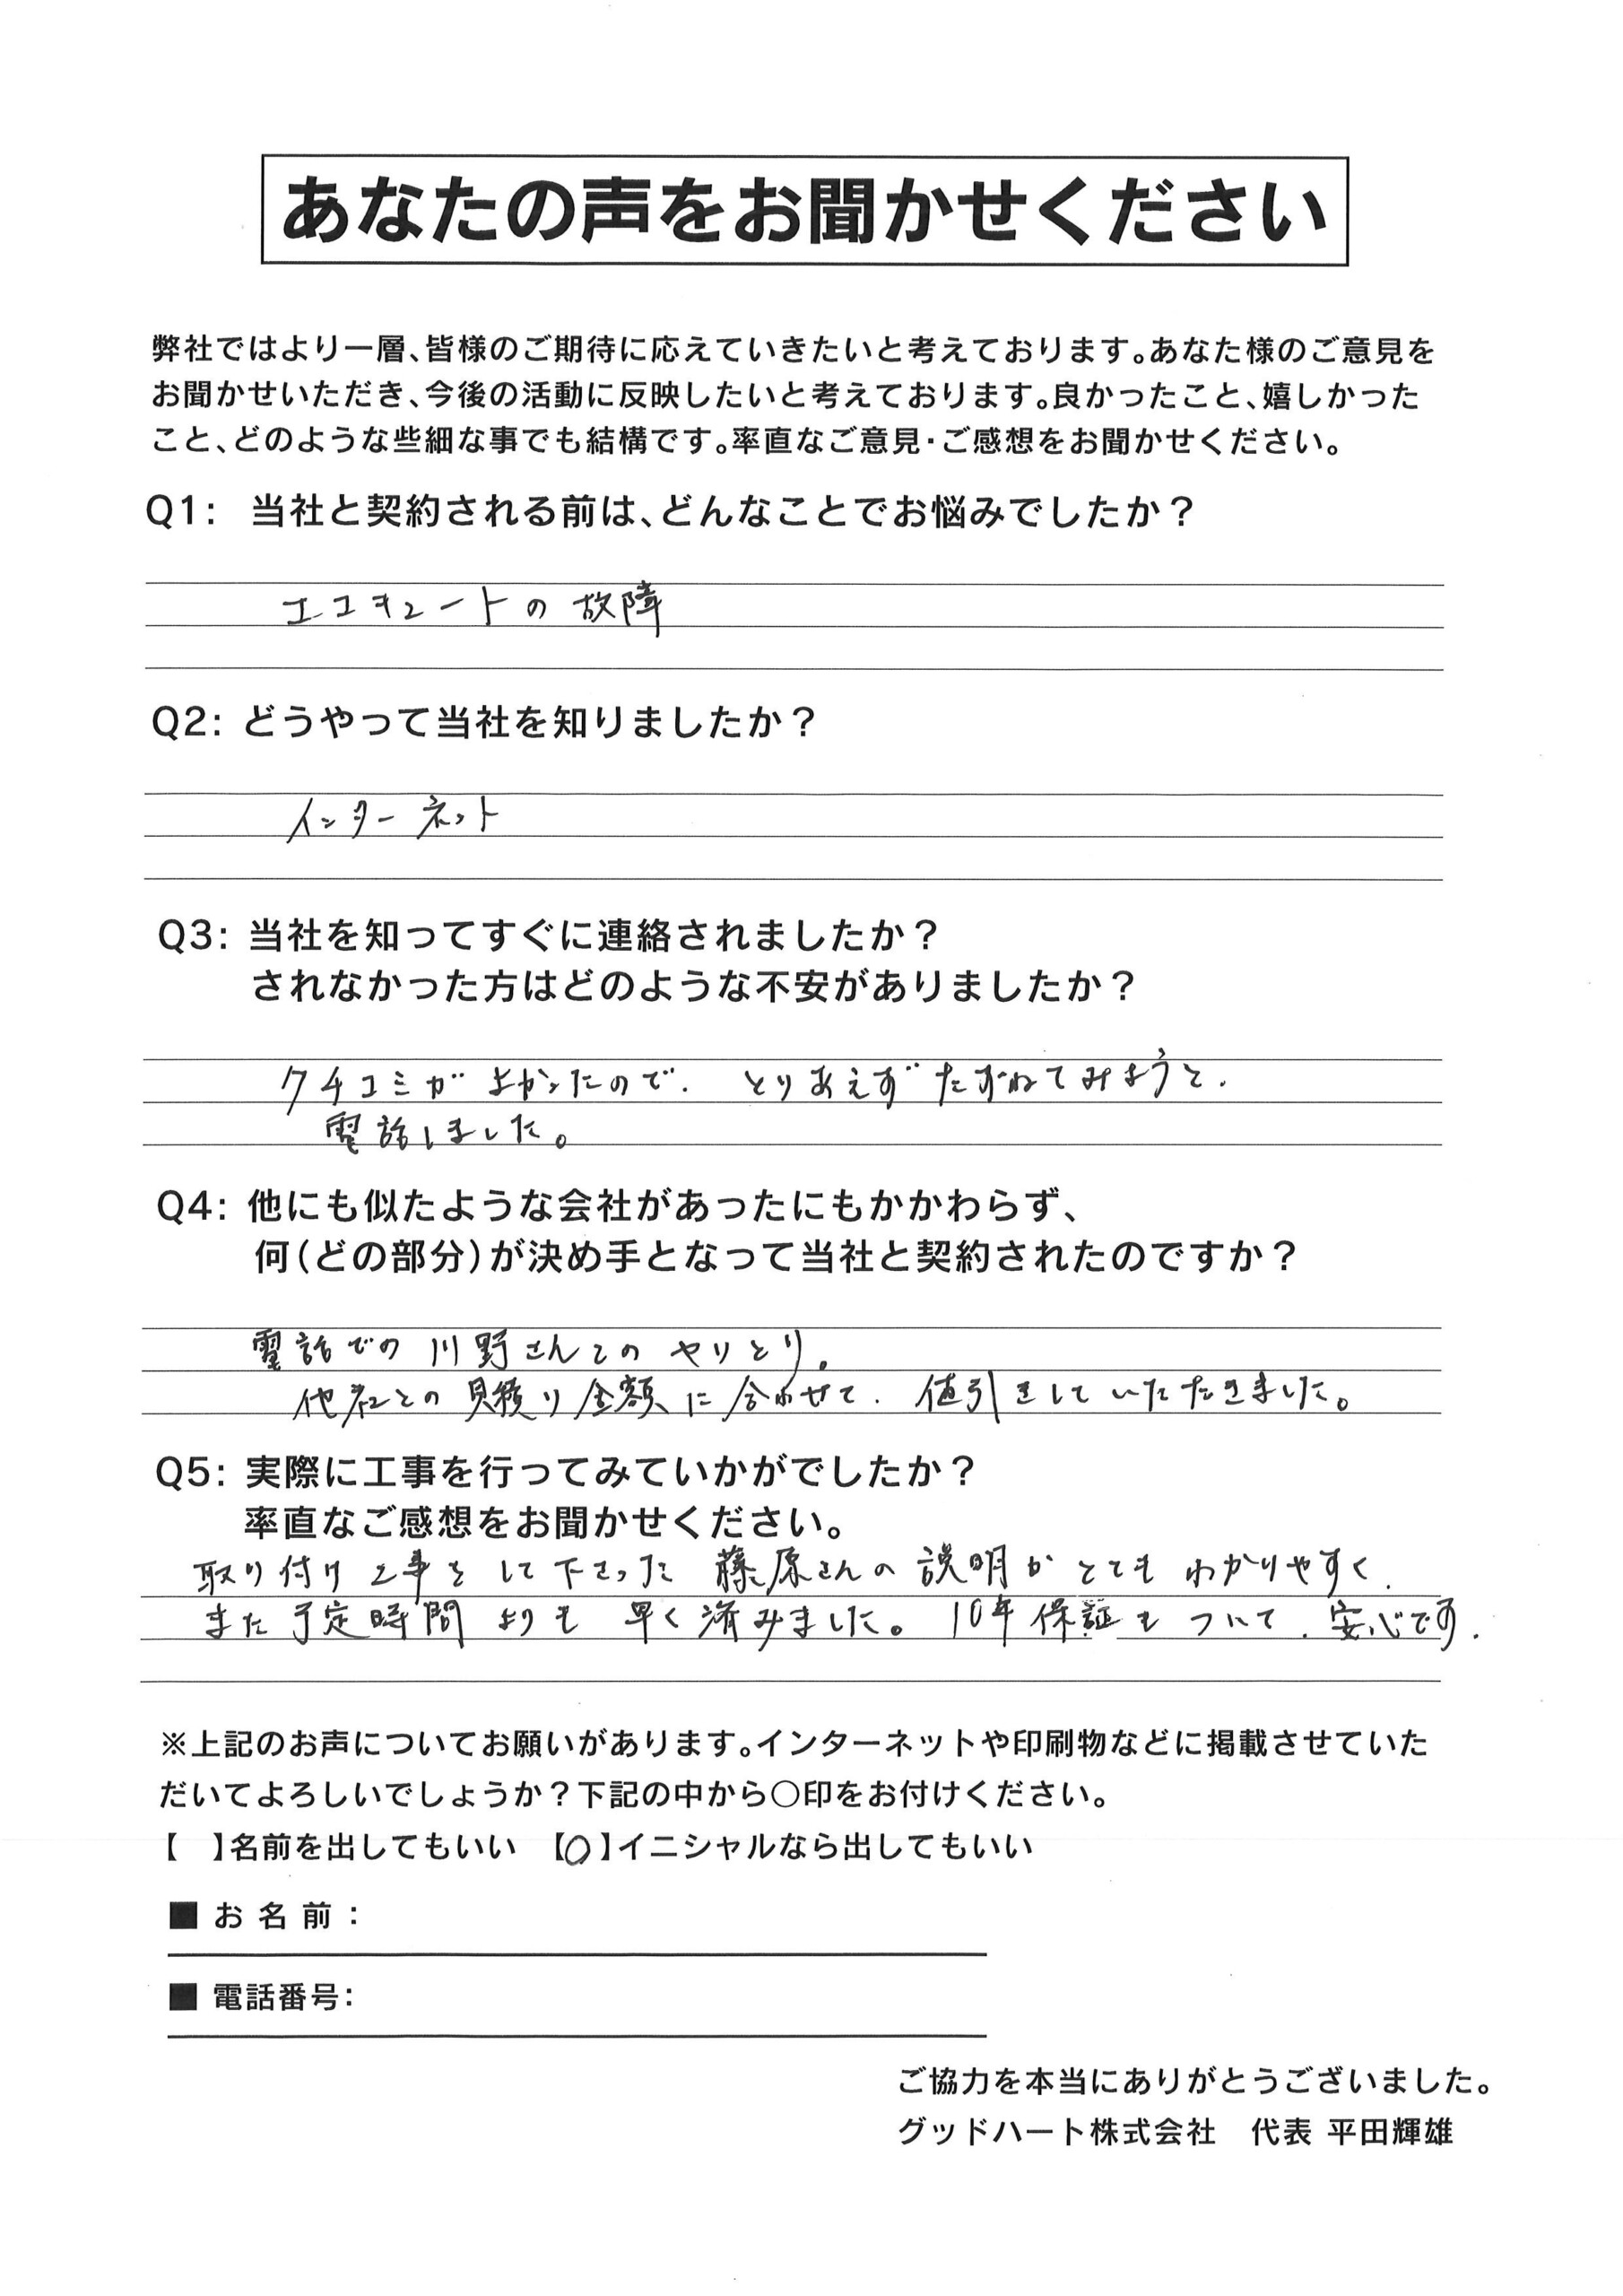 あなたの声をお聞かせください
弊社ではより一層、皆様のご期待に応えていきたいと考えております。あなた様のご意見を
お聞かせいただき、今後の活動に反映したいと考えております。良かったこと、嬉しかった
こと、どのような些細な事でも結構です。率直なご意見・ご感想をお聞かせください。
Q1: 当社と契約される前は、どんなことでお悩みでしたか？
エコキュートの故障
Q2: どうやって当社を知りましたか？
インターネット
Q3: 当社を知ってすぐに連絡されましたか？
されなかった方はどのような不安がありましたか？
クチコミがよかったので、とりあえずたずねてみようと、
電話しました。
Q4: 他にも似たような会社があったにもかかわらず、
何(どの部分)が決め手となって当社と契約されたのですか？
電話での川野さんとのやりとり。
他社との見積り金額に合わせて、値引きしていただきました。
Q5: 実際に工事を行ってみていかがでしたか？
率直なご感想をお聞かせください。
取り付け工事をして下さった藤原さんの説明がとてもわかりやすく、
また予定時間よりも早く済みました。10年保証もついて、安心です。
※上記のお声についてお願いがあります。インターネットや印刷物などに掲載させていた
だいてよろしいでしょうか？下記の中から○印をお付けください。
【　】名前を出してもいい 【○】イニシャルなら出してもいい
■ お名前：
■ 電話番号：
ご協力を本当にありがとうございました。
グッドハート株式会社　代表 平田輝雄